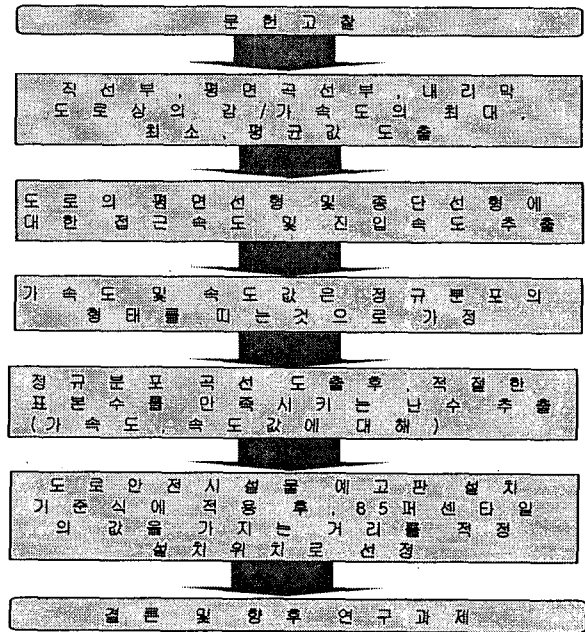 문헌고찰
직선부, 평면곡선부, 내리막
도로상의 감/가속도의 최대,
최소, 평균값 도출
도로의 평면선형 및 종단선형에
대한 접근속도 및 진입속도 추출
가속도 및 속도값은 정규분포의
형태를 띠는것으로 가정
정규분포곡선 도출후, 적절한
표본수를 만족시키는 난수 추출
(가속도, 속도값에 대해)
도로안전시설물 예고판 설치
기준식에 적용 후, 85퍼센타일
의 값을 가지는 거리를 적정
설치위치로 선정
결론 및 향후 연구과제